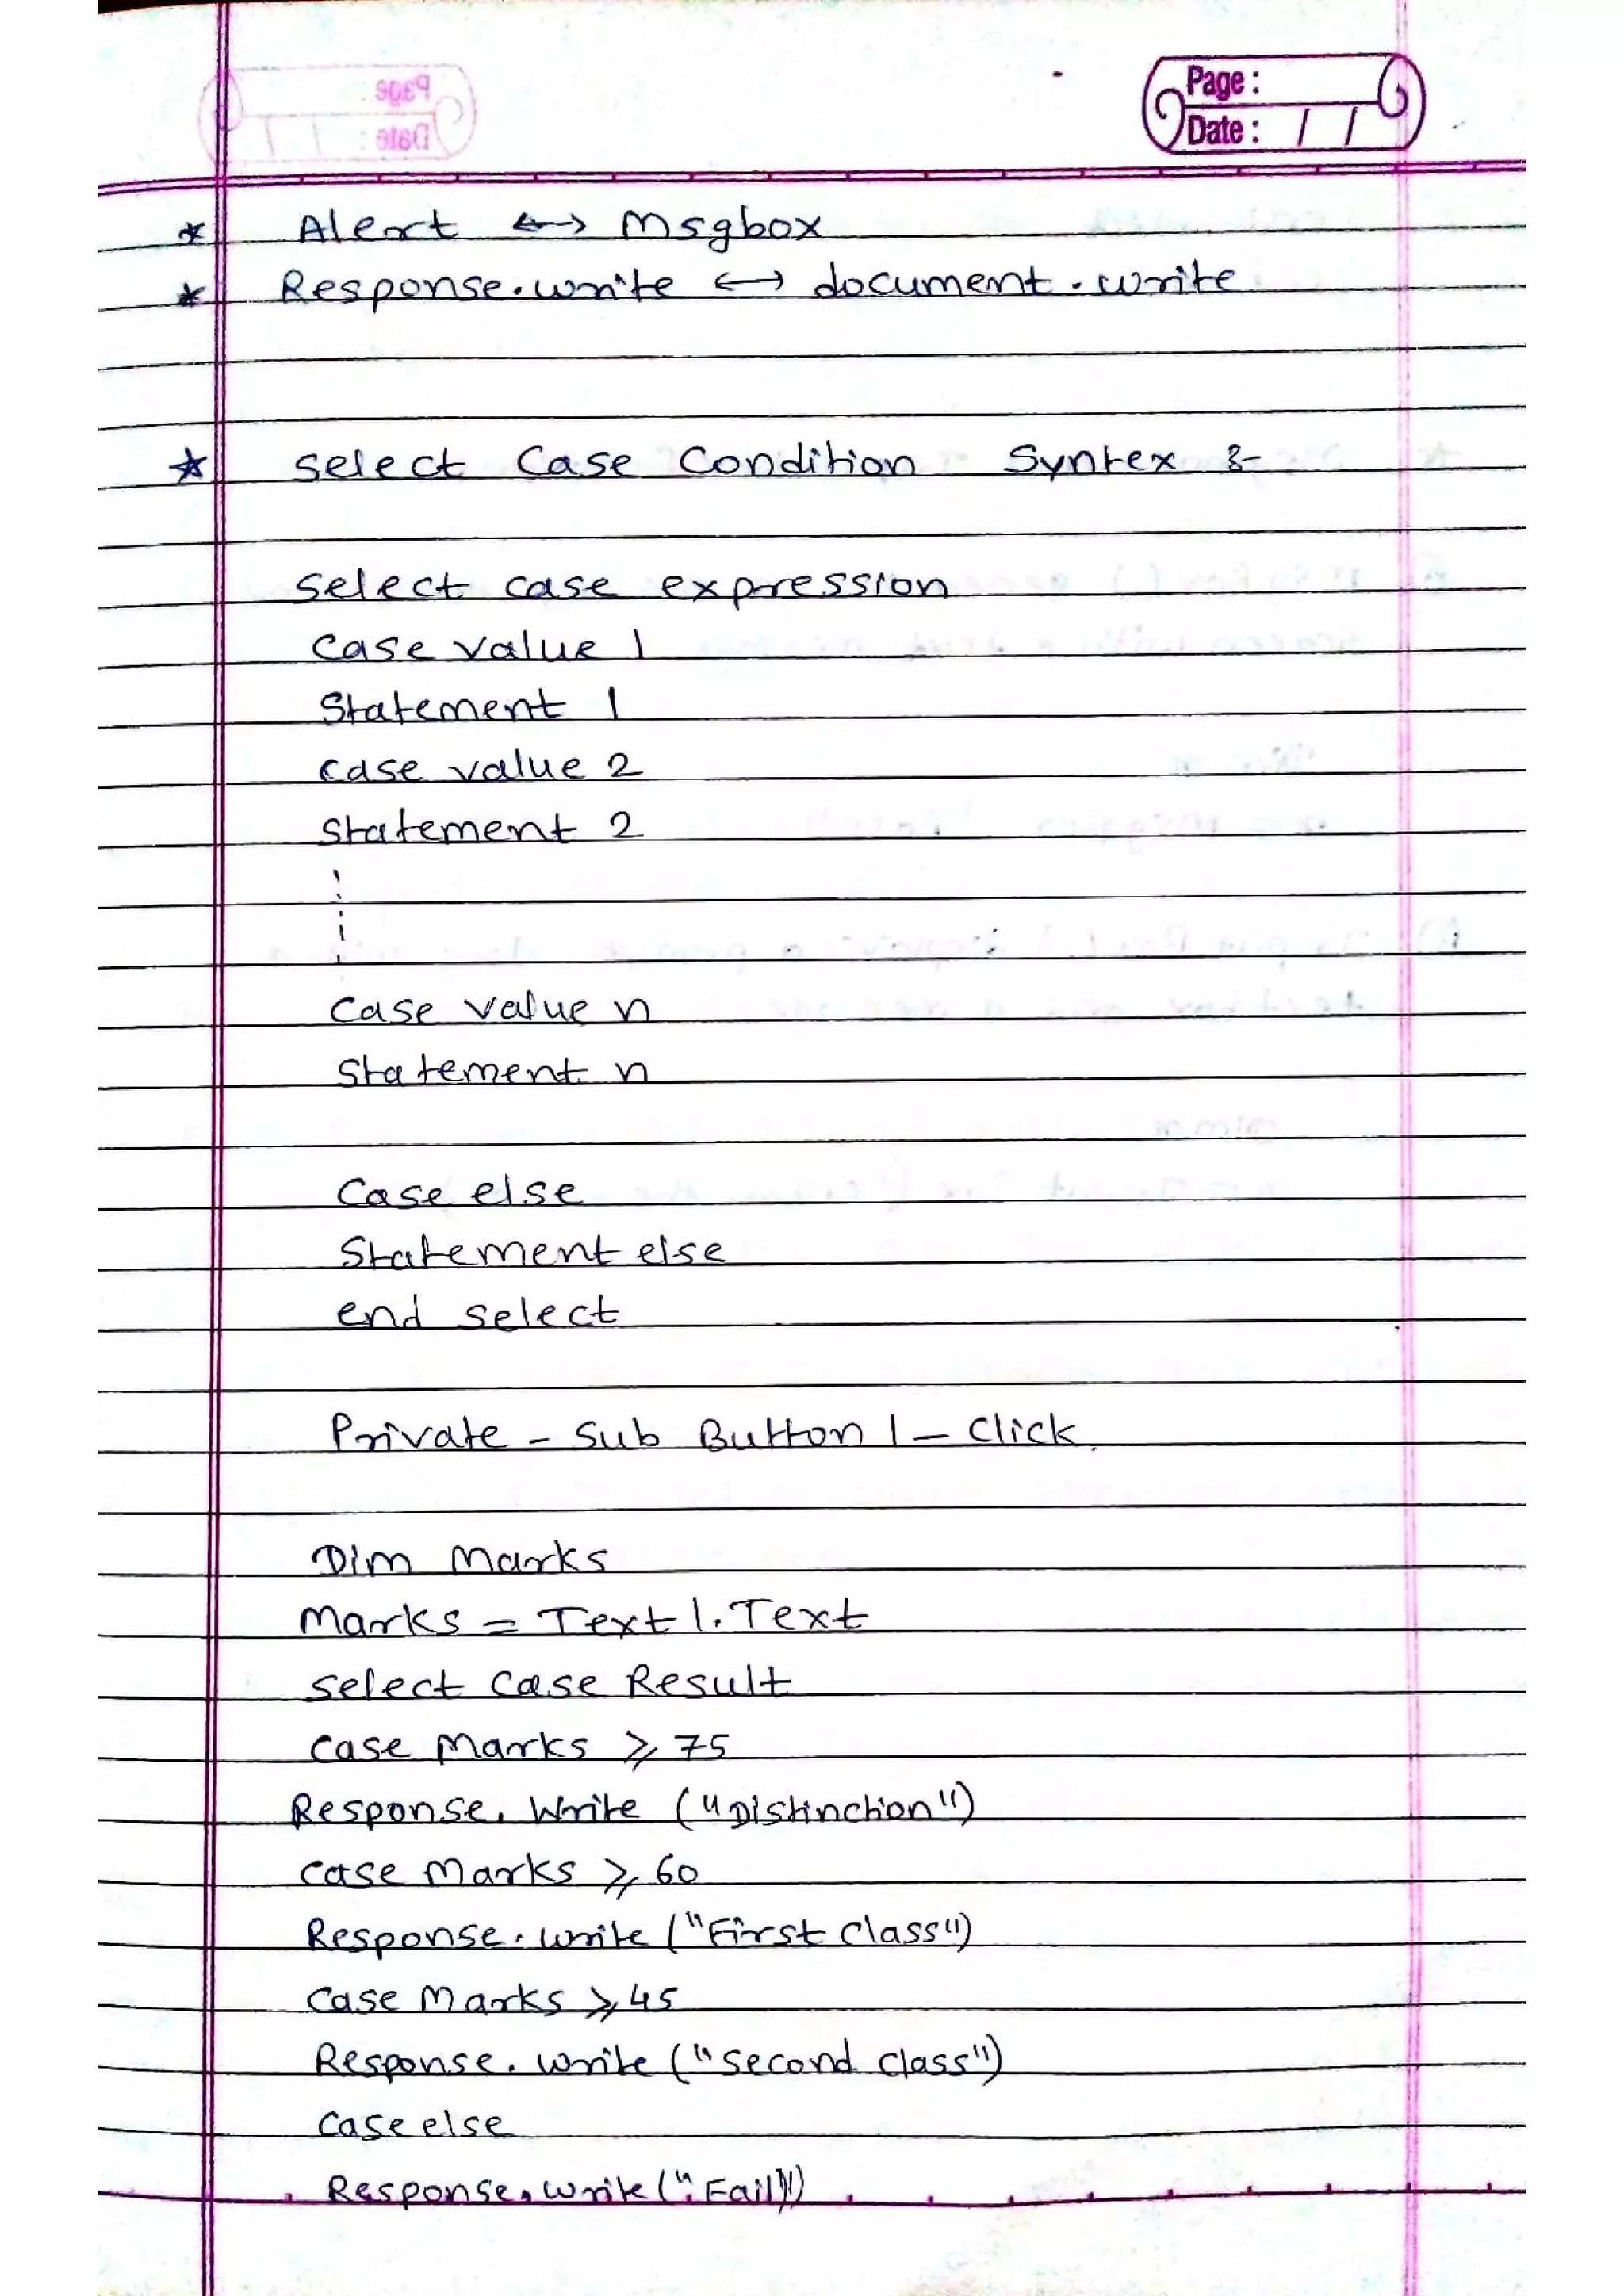 Page :
Date : / /
* Alert ↔ Msgbox
* Response.write ↔ document.write
* Select Case Condition Syntex :-
Select case expression
Case value 1
Statement 1
case value 2
Statement 2
Case value n
Statement n
Case else
Statement else
end select
Private - Sub Button 1 - Click
Dim Marks
Marks = Text 1. Text
Select Case Result
Case Marks ⩾ 75
Response. Write ("Distinction")
case Marks ⩾ 60
Response. write ("First class")
Case Marks ⩾ 45
Response. write ("Second class")
Case else
Response. write ("Fail")